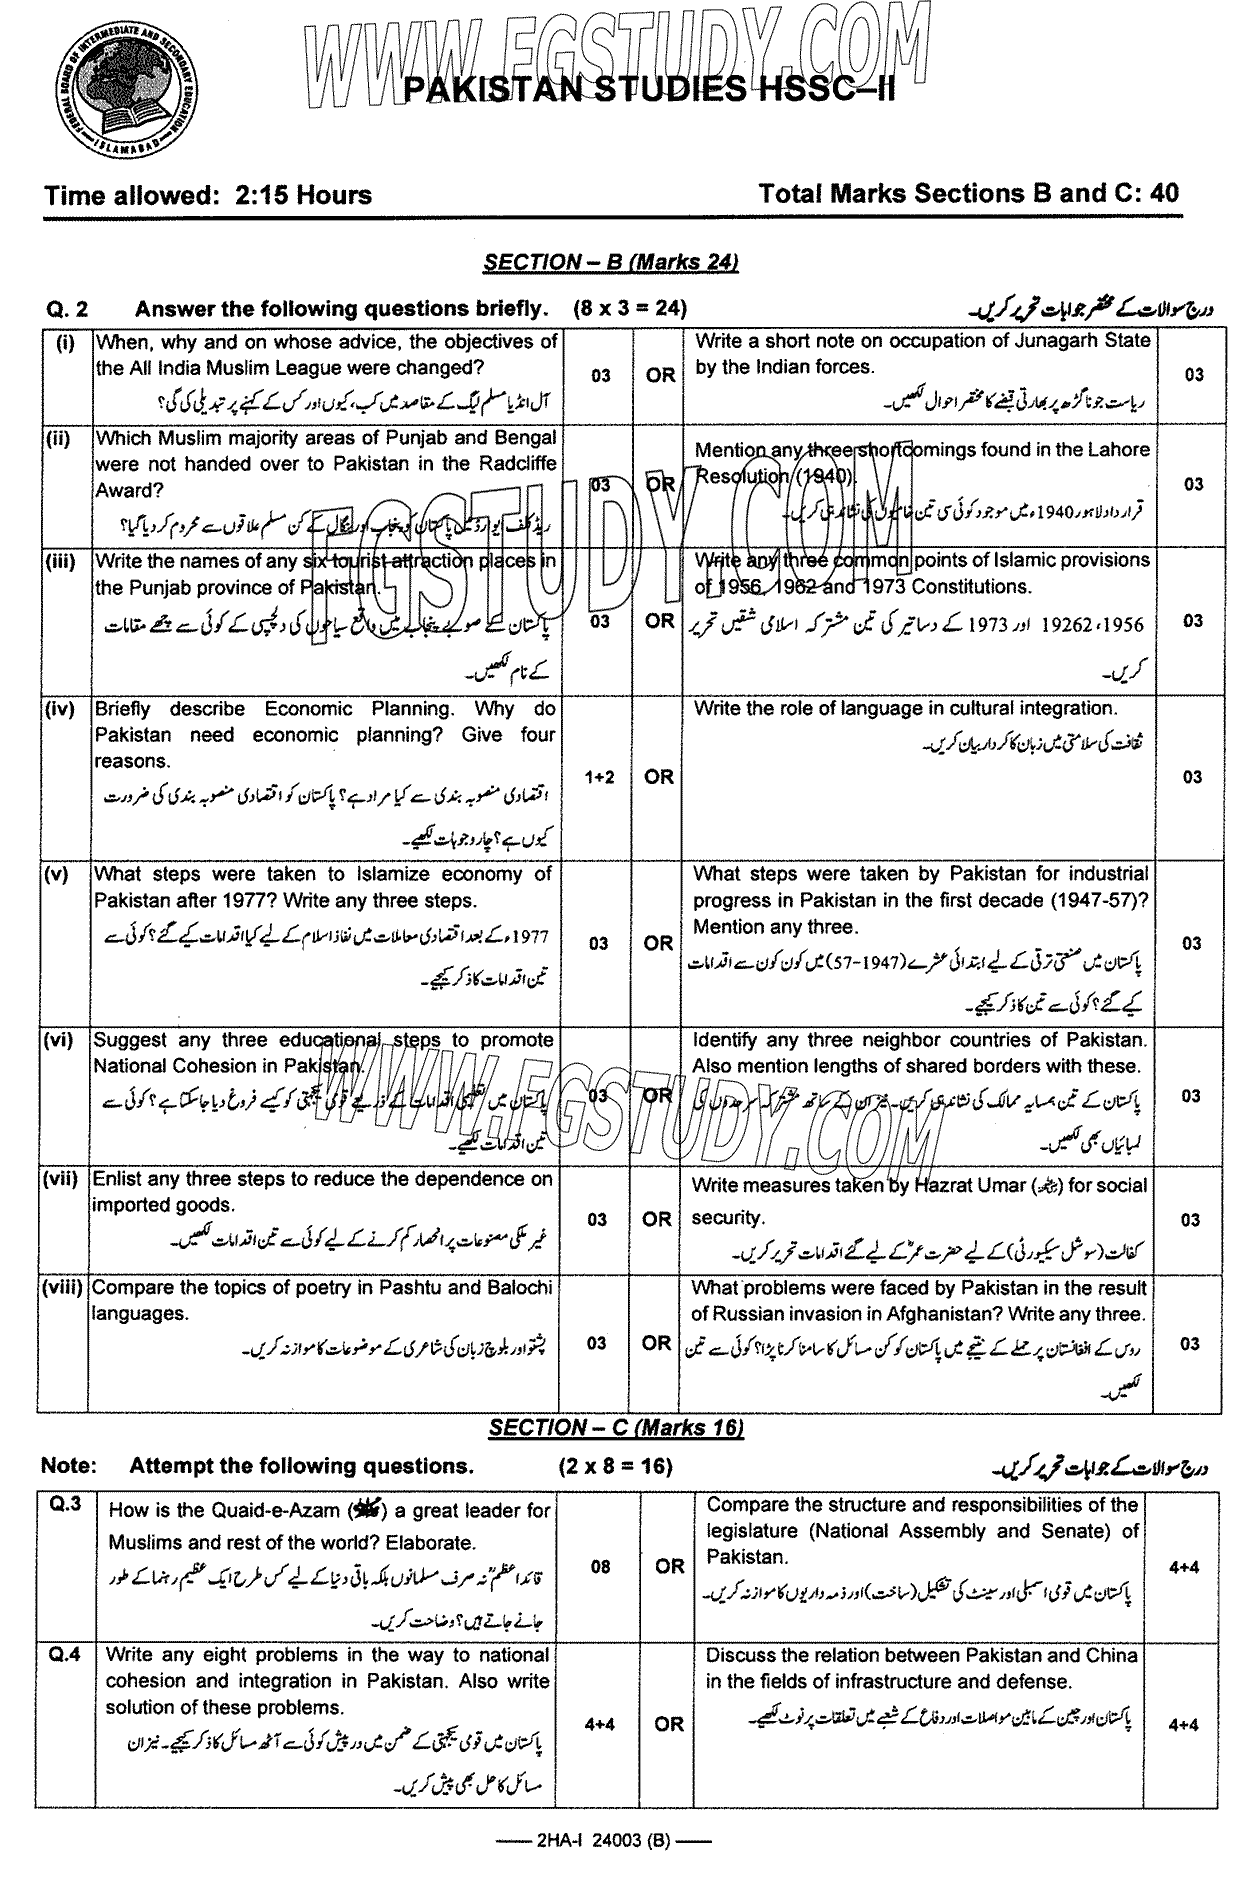 WWW.FGSTUDY.COM
FEDERAL BOARD OF INTERMEDIATE AND SECONDARY EDUCATION
ISLAMABAD
PAKISTAN STUDIES HSSC–II
Time allowed: 2:15 Hours
Total Marks Sections B and C: 40
SECTION – B (Marks 24)
Q. 2 Answer the following questions briefly. (8 x 3 = 24)
درج سوالات کے مختصر جوابات تحریر کریں۔
(i) When, why and on whose advice, the objectives of
the All India Muslim League were changed?
آل انڈیا مسلم لیگ کے مقاصد میں کب، کیوں اور کس کے کہنے پر تبدیلی کی گی؟
03
OR
Write a short note on occupation of Junagarh State
by the Indian forces.
ریاست جوناگڑھ پر بھارتی قبضے کا مختصر احوال لکھیں۔
03
(ii) Which Muslim majority areas of Punjab and Bengal
were not handed over to Pakistan in the Radcliffe
Award?
ریڈ کلف ایوارڈ میں پاکستان کو پنجاب اور بنگال کے کن مسلم علاقوں سے محروم کر دیا گیا؟
03
OR
Mention any three shortcomings found in the Lahore
Resolution (1940).
قرار داد لاہور، 1940ء میں موجود کوئی سی تین خامیوں کی نشاندہی کریں۔
03
FGSTUDY.COM
(iii) Write the names of any six tourist attraction places in
the Punjab province of Pakistan.
پاکستان کے صوبے پنجاب میں واقع سیاحوں کی دلچسپی کے کوئی سے چھے مقامات
کے نام لکھیں۔
03
OR
Write any three common points of Islamic provisions
of 1956, 1962 and 1973 Constitutions.
1956، 19262 اور 1973 کے دساتیر کی تین مشترکہ اسلامی شقیں تحریر
کریں۔
03
(iv) Briefly describe Economic Planning. Why do
Pakistan need economic planning? Give four
reasons.
اقتصادی منصوبہ بندی سے کیا مراد ہے؟ پاکستان کو اقتصادی منصوبہ بندی کی ضرورت
کیوں ہے؟ چار وجوہات لکھیے۔
1+2
OR
Write the role of language in cultural integration.
ثقافت کی سلامتی میں زبان کا کردار بیان کریں۔
03
(v) What steps were taken to Islamize economy of
Pakistan after 1977? Write any three steps.
1977ء کے بعد اقتصادی معاملات میں نفاذ اسلام کے لیے کیا اقدامات کیے گئے؟ کوئی سے
تین اقدامات کا ذکر کیجیے۔
03
OR
What steps were taken by Pakistan for industrial
progress in Pakistan in the first decade (1947-57)?
Mention any three.
پاکستان میں صنعتی ترقی کے لیے ابتدائی عشرے (1947-57) میں کون کون سے اقدامات
کیے گئے؟ کوئی سے تین کا ذکر کیجیے۔
03
(vi) Suggest any three educational steps to promote
National Cohesion in Pakistan.
پاکستان میں تعلیمی اقدامات کے ذریعے قومی یکجہتی کو کیسے فروغ دیا جا سکتا ہے؟ کوئی سے
تین اقدامات لکھیے۔
03
OR
Identify any three neighbor countries of Pakistan.
Also mention lengths of shared borders with these.
پاکستان کے تین ہمسایہ ممالک کی نشاندہی کریں۔ نیز ان کے ساتھ مشترکہ سرحدوں کی
لمبائیاں بھی لکھیں۔
03
WWW.FGSTUDY.COM
(vii) Enlist any three steps to reduce the dependence on
imported goods.
غیر ملکی مصنوعات پر انحصار کم کرنے کے لیے کوئی سے تین اقدامات لکھیں۔
03
OR
Write measures taken by Hazrat Umar () for social
security.
کفالت (سوشل سیکیورٹی) کے لیے حضرت عمرؓ کے لیے گئے اقدامات تحریر کریں۔
03
(viii) Compare the topics of poetry in Pashtu and Balochi
languages.
پشتو اور بلوچ زبان کی شاعری کے موضوعات کا موازنہ کریں۔
03
OR
What problems were faced by Pakistan in the result
of Russian invasion in Afghanistan? Write any three.
روس کے افغانستان پر حملے کے نتیجے میں پاکستان کو کن مسائل کا سامنا کرنا پڑا؟ کوئی سے تین
لکھیں۔
03
SECTION – C (Marks 16)
Note: Attempt the following questions. (2 x 8 = 16)
درج سوالات کے جوابات تحریر کریں۔
Q.3 How is the Quaid-e-Azam () a great leader for
Muslims and rest of the world? Elaborate.
قائد اعظمؒ نہ صرف مسلمانوں بلکہ باقی دنیا کے لیے کس طرح ایک عظیم رہنما کے طور
جانے جاتے ہیں؟ وضاحت کریں۔
08
OR
Compare the structure and responsibilities of the
legislature (National Assembly and Senate) of
Pakistan.
پاکستان میں قومی اسمبلی اور سینٹ کی تشکیل (ساخت) اور ذمہ داریوں کا موازنہ کریں۔
4+4
Q.4 Write any eight problems in the way to national
cohesion and integration in Pakistan. Also write
solution of these problems.
پاکستان میں قومی یکجہتی کے ضمن میں درپیش کوئی سے آٹھ مسائل کا ذکر کیجیے۔ نیز ان
مسائل کا حل بھی پیش کریں۔
4+4
OR
Discuss the relation between Pakistan and China
in the fields of infrastructure and defense.
پاکستان اور چین کے مابین مواصلات اور دفاع کے شعبے میں تعلقات پر نوٹ لکھیے۔
4+4
—— 2HA-I 24003 (B) ——